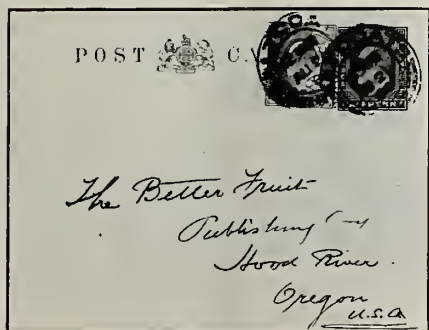 POST C
The Better Fruit
Publishing Co
Hood River.
Oregon
U.S.A.